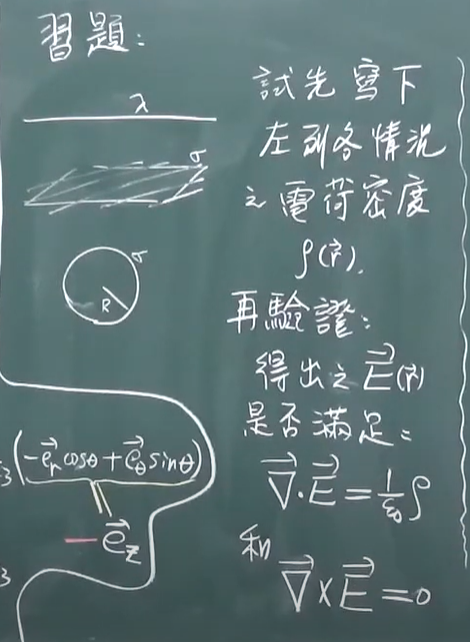 習題：
λ
σ
σ
R
試先寫下
左列各情況
之電荷密度
ρ(r⃗).
再驗證：
得出之 E⃗(r⃗)
是否滿足：
∇⃗·E⃗ = 1/ε₀ ρ
和
∇⃗×E⃗ = 0
(-e⃗ᵣ cosθ + e⃗_θ sinθ)
— e⃗_z